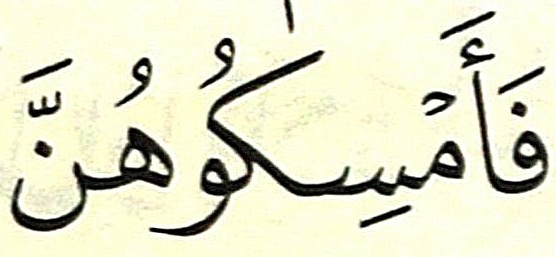 فَأَمۡسِكُوهُنَّ